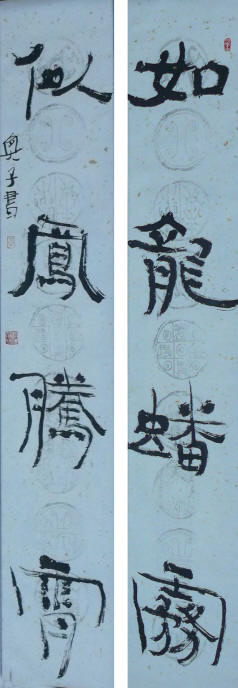 如龍蟠霧
似鳳騰霄
奥子書